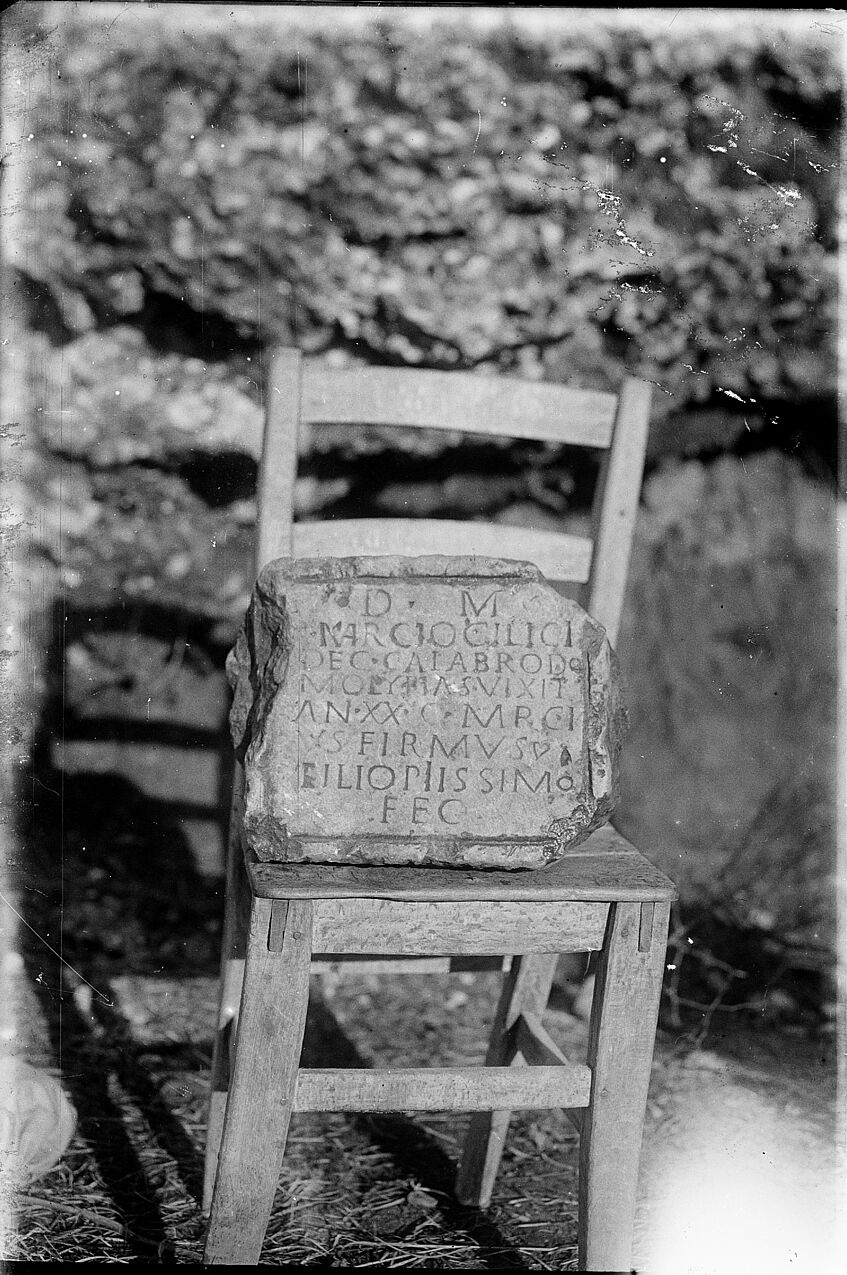 D · M
MARCIO CILICI
DEC · CALABRO DO
MOLYHAS VIXIT
AN · XX · C · MRCI
VS FIRMVS
FILIO PIISSIMO
FEC